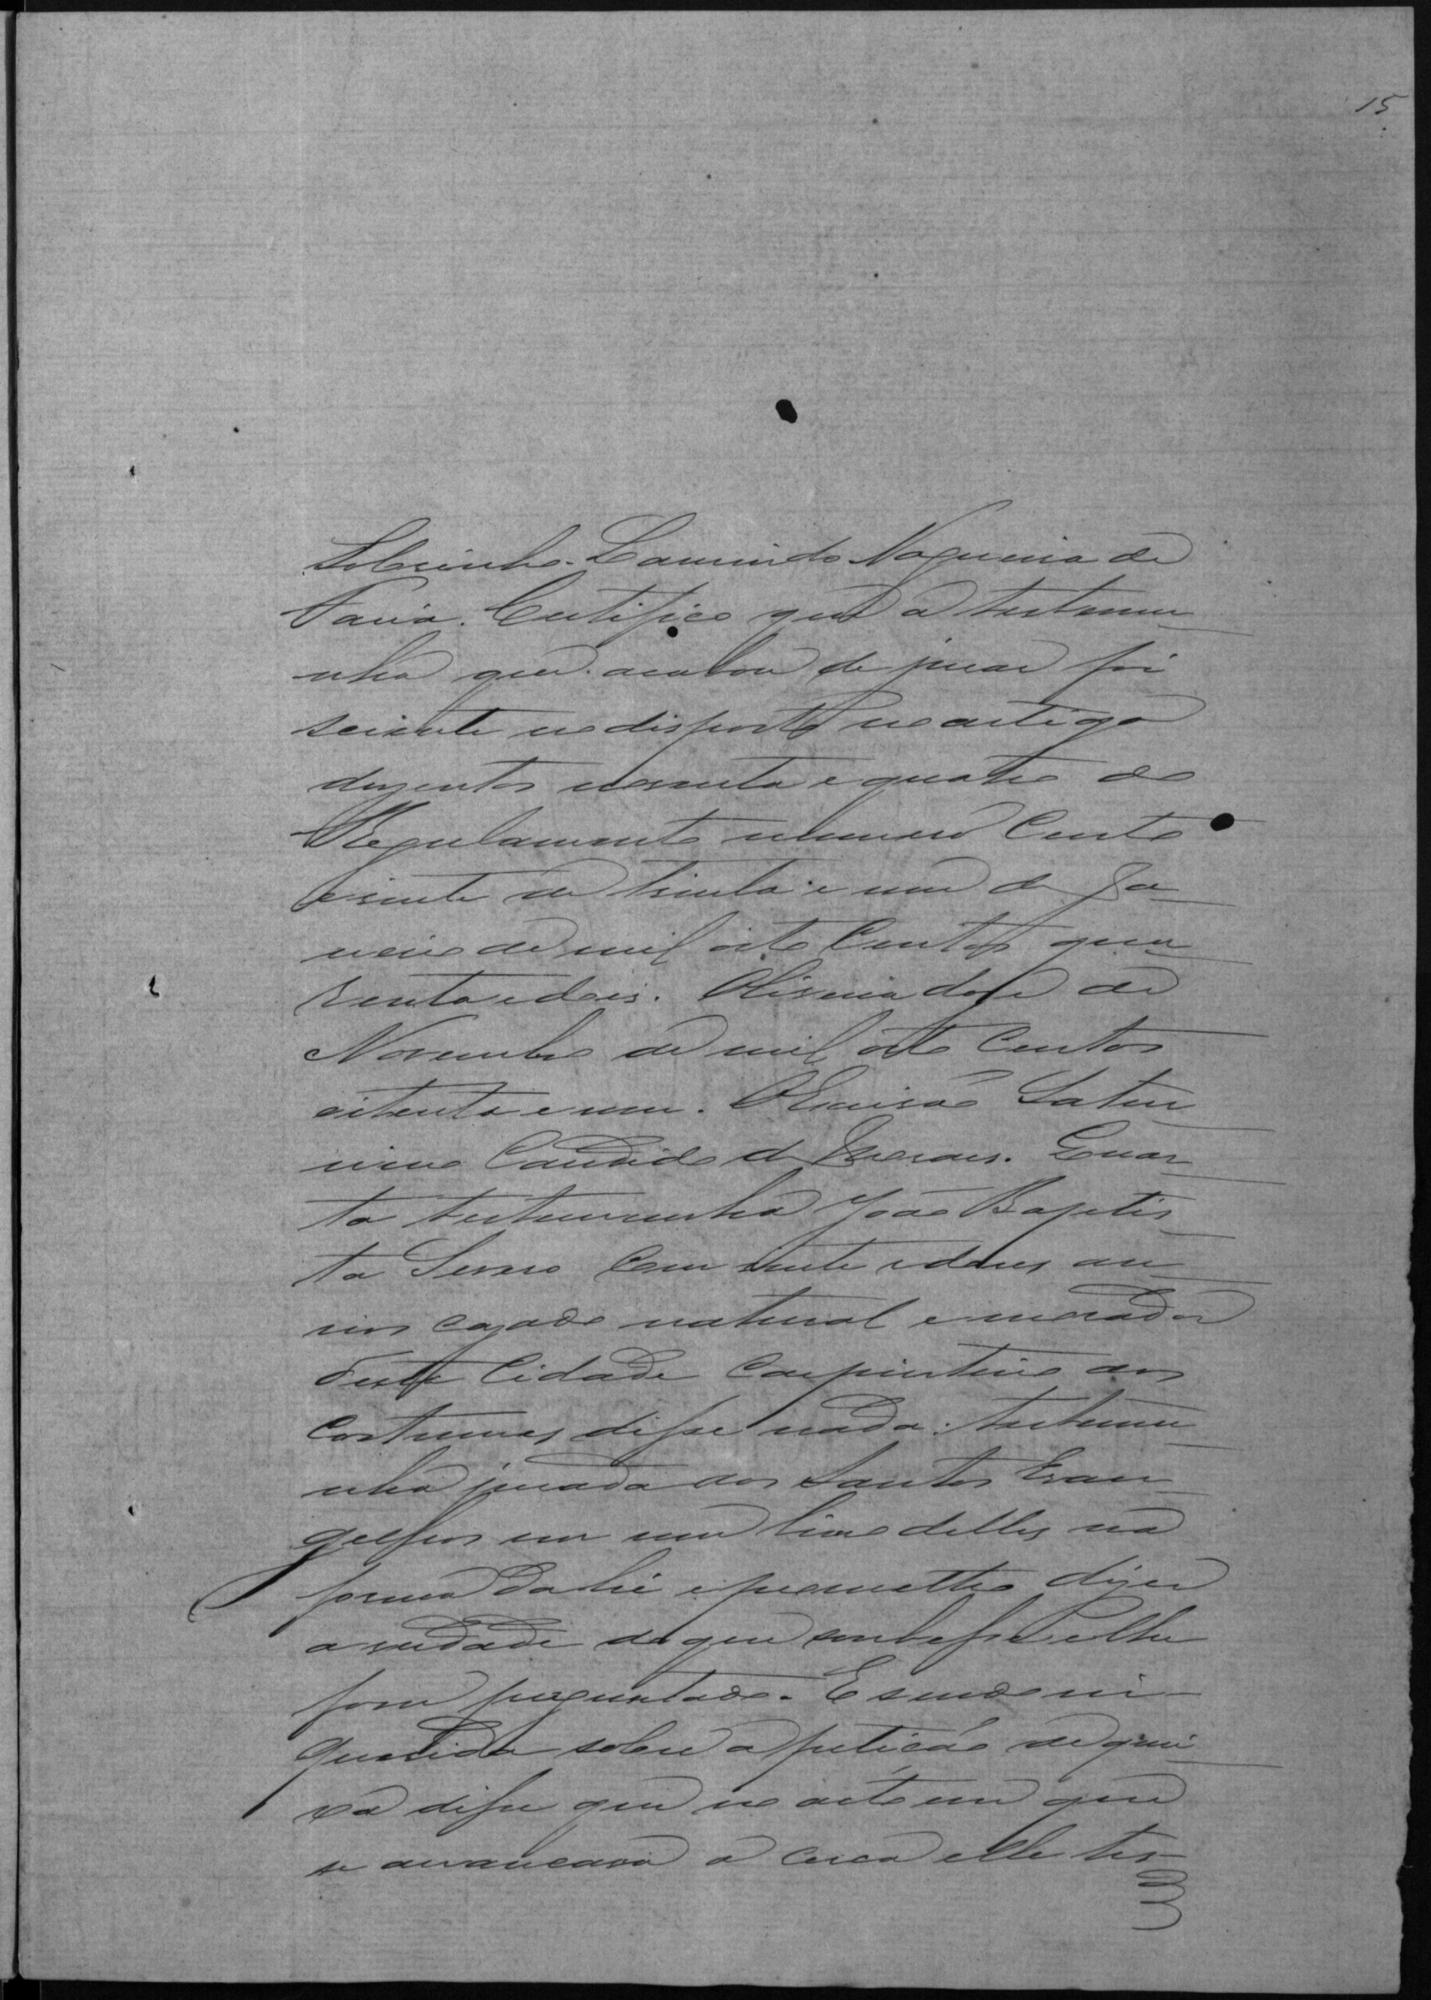 15
Sobrinho. Laurindo Nogueira de
Faria. Certifico que a testemu-
nha que acabou de jurar foi
sciente no disposto no artigo
duzentos noventa e quatro do
Regulamento numero Cento
e vinte de trinta e um de Ja-
neiro de mil oito Centos qua-
renta e dois. doze de
Novembro de mil oito Centos
oitenta e um. O Escrivão Satur-
nino Candido de Moraes. Quar-
ta testemunha João Baptis-
ta com vinte e dous an-
nos cazado natural e morador
desta Cidade Carpinteiro aos
costumes disse nada. testemu-
nha jurada aos Santos Evan-
gelhos em um livro delles na
forma da lei e prometteo dizer
a verdade do que soubesse e lhe
fosse perguntado. E sendo in-
querida sobre a petição de quei-
xa disse que no acto em que
se arrancava a cerca elle tes-